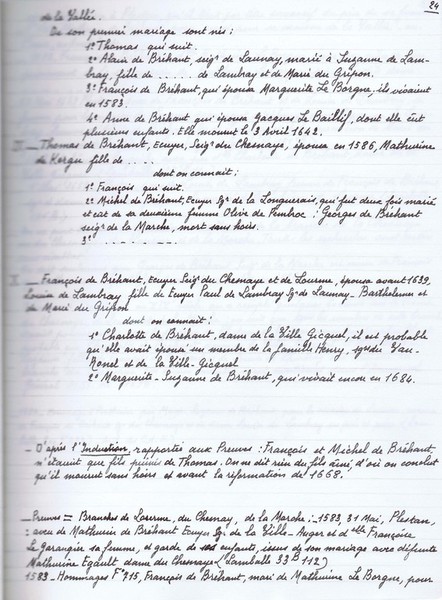 24
de la Vallée.
De son premier mariage sont nés :
1º Thomas qui suit.
2º Alain de Bréhant, seigr de Launay, marié à Suzanne de Lam-
bray, fille de ..... de Lambray et de Marie du Gripon.
3º François de Bréhant, qui épousa Marguerite Le Borgne, ils vivaient
en 1583.
4º Anne de Bréhant qui épousa Jacques Le Baillif, dont elle eût
plusieurs enfants. Elle mourut le 3 Avril 1642.
Thomas de Bréhant, Ecuyer, Seigr du Chesnaye, épousa en 1586, Mathurine
de Kergu fille de ....
dont on connait :
1º François qui suit.
2º Michel de Bréhant, Ecuyer Sgr de la Longuerais, qui fut deux fois marié
et eut de sa deuxième femme Olive de Pembroc : Georges de Bréhant
seigr de la Marche, mort sans hoirs.
3º .. . .. . — . —
X — François de Bréhant, Ecuyer Seigr du Chesnaye et de Lourme, épousa avant 1639,
Louise de Lambray fille de Ecuyer Paul de Lambray Sgr de Launay-Barthelemer et
de Marie du Gripon
dont on connait :
1º Charlotte de Bréhant, dame de la Ville Gicquel, il est probable
qu'elle avait épousé un membre de la famille Henry, sgrs du Vau-
Nonel et de la Ville-Gicquel
2º Marguerite-Suzanne de Bréhant, qui vivait encore en 1684.
— D'après l'Induction, rapportée aux Preuves : François et Michel de Bréhant
n'étaient que fils puinés de Thomas. On ne dit rien du fils aîné d'où on conclut
qu'il mourut sans hoirs et avant la réformation de 1668.
— Preuves = Branches de Lourme, du Chesnay, de la Marche : -1583, 31 Mai, Plestan,
: aveu de Mathurin de Bréhant Ecuyer Sgr de la Ville-Auger et delle Françoise
Le Garangier sa femme, et garde de ses enfants, issus de son mariage avec défunte
Mathurine Egault dame du Chesnaye (Lamballe 33 B 112)
1583 - Hommages Fº 915, François de Bréhant, mari de Mathurine Le Borgne, pour